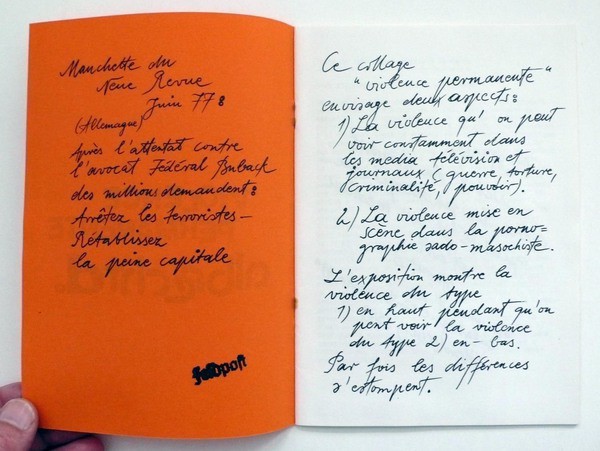 Manchette du
Neue Revue
Juin 77:
(Allemagne)
Après l'attentat contre
l'avocat Fédéral Buback
des millions demandent:
Arrêtez les terroristes–
Rétablissez
la peine capitale
Feldpost
Ce collage
"violence permanente"
envisage deux aspects:
1) La violence qu'on peut
voir constamment dans
les media télévision et
journaux (guerre, torture,
criminalité, pouvoir).
2) La violence mise en
scène dans la porno=
graphie sado-masochiste.
L'exposition montre la
violence du type
1) en haut pendant qu'on
peut voir la violence
du type 2) en-bas.
Par fois les différences
s'estompent.